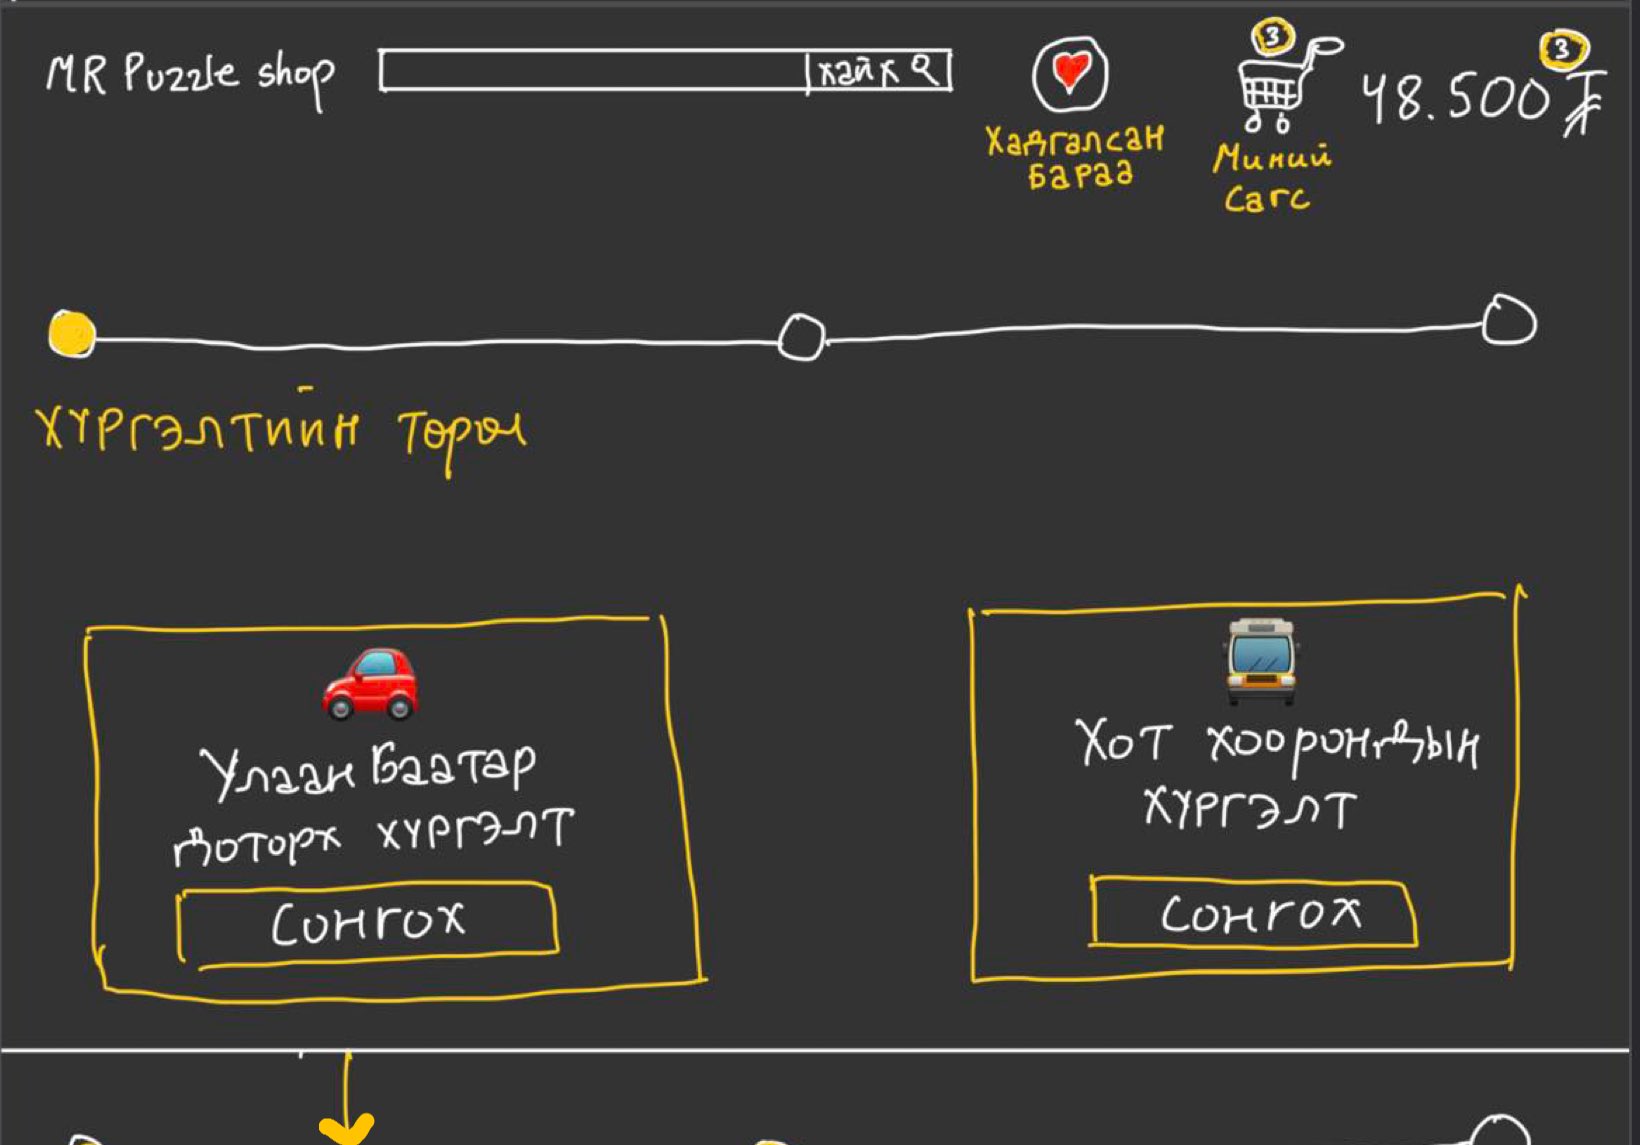 MR Puzzle shop
хайх
3
3
48.500 ₮
Хадгалсан
Бараа
Миний
Сагс
ХҮРГЭЛТИЙН төрөл
Улаан Баатар
доторх хүргэлт
Сонгох
Хот хоорондын
хүргэлт
Сонгох